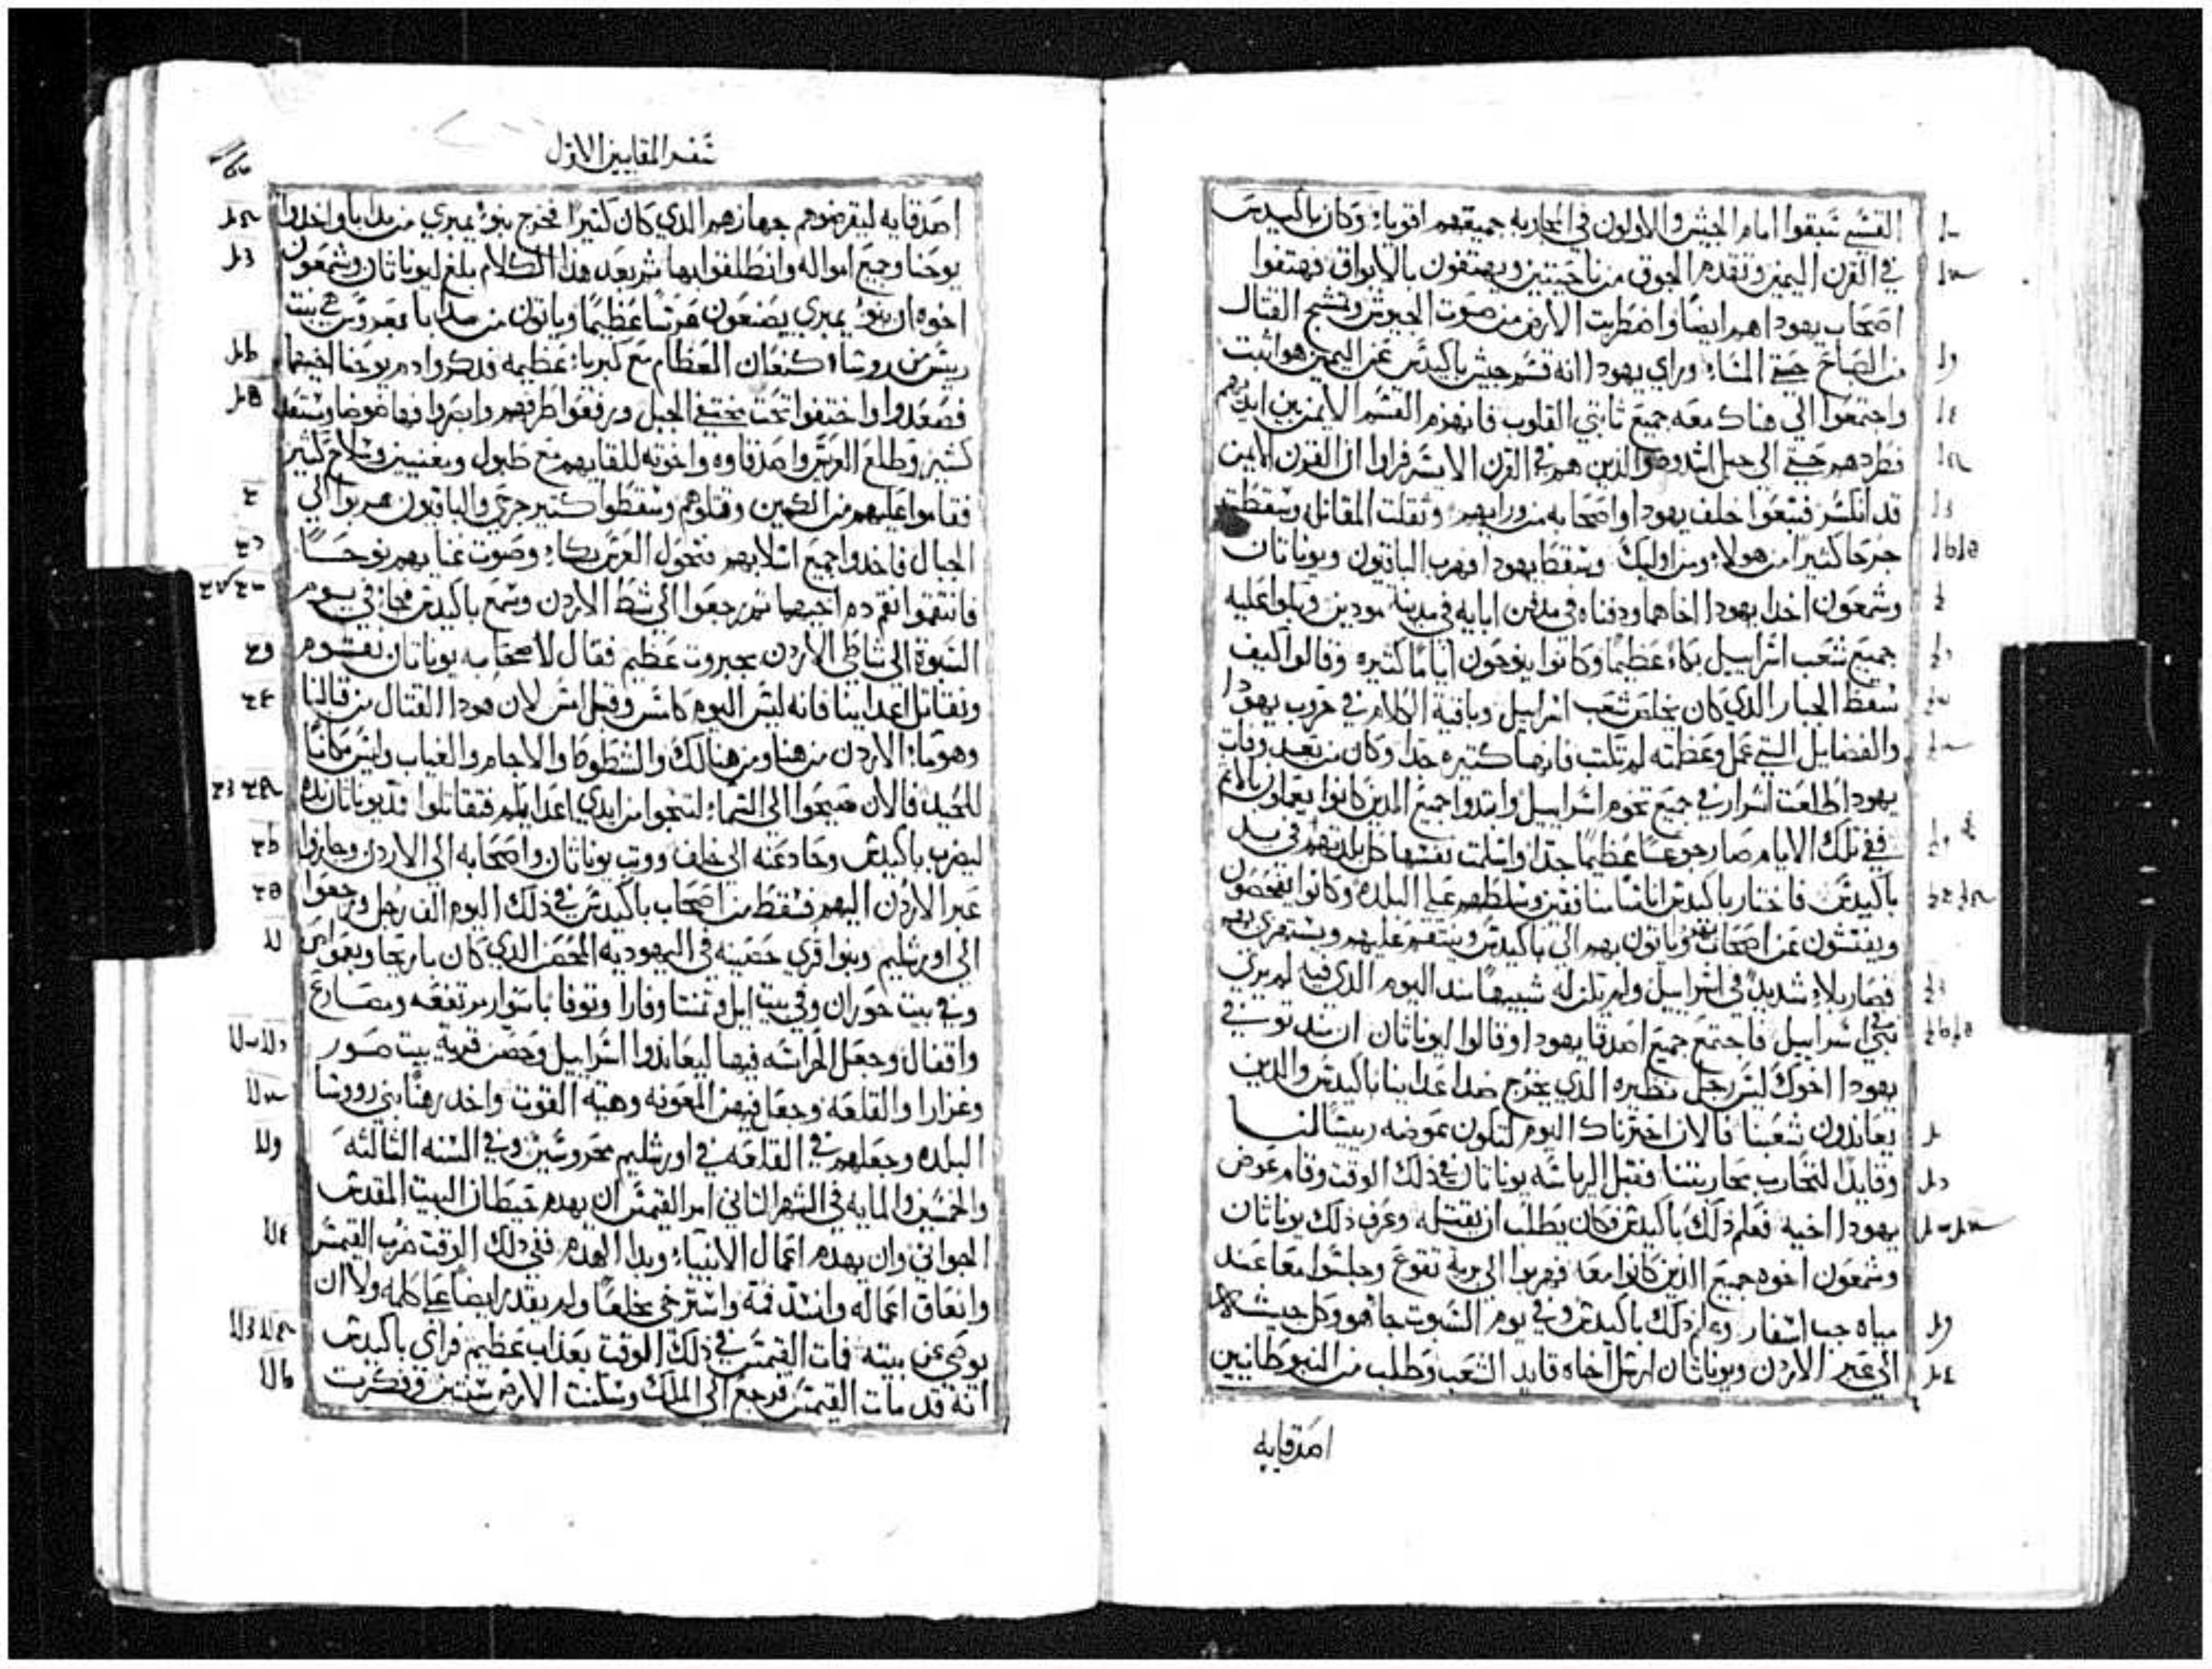 القسي سبقوا امام الجيش والاولون في المحاربه جميعهم اقوياء وكان باكيديس
في القرن اليمين وتقدم الجوق من ناحيتين ويهتفون بالابواق فهتفوا
اصحاب يهودا هم ايضا واضطربت الارض من صوت الجيوش ونشج القتال
من الصباح حتي المساء وراي يهودا انه قسم جيش باكيدس عن اليمين هو اثبت
واجتمعوا الي هناك معه جميع ثابتي القلوب فانهزم القسم الايمن من ايديهم
فطردهم حتي الي جبل اشدود والذين هم في القرن الايسر فراوا ان القرن الايمن
قد انكسر فتبعوا خلف يهودا واصحابه من ورايهم وثقلت المقاتله وسقطت
جرحا كثيرا من هولاء ومن اوليك وسقط يهودا فهرب الباقون ويوناتان
وشمعون اخدا يهودا اخاهما ودفناه في مدفن ابايه في مدينة مودين وبكوا عليه
جميع شعب اسراييل بكاء عظيما وكانوا ينوحون اياما كثيره وقالوا كيف
سقط الجبار الدي كان يخلص شعب اسراييل وباقية الكلام في حروب يهودا
والفضايل التي عمل وعظمته لم تكتب فانها كتيره جدا وكان من بعد وفات
يهودا طلعت اشرار في جميع تخوم اسراييل وابتدوا جميع الدين كانوا يعملون بالاتم
ففي تلك الايام صار جوعا عظيما جدا واسلمت نفسها كل بلدتهم في يد
باكيدس فاختار باكيدس اناسا منافقين وسلطهم علي البلده وكانوا يفحصون
ويفتشون عن اصحاب يهودا وياتون بهم الي باكيدس وينتقم عليهم ويستهزي بهم
فصار بلاء شديد في اسراييل ولم تكن له شبيها مند اليوم الدي فيه لم يري
نبي في اسراييل فاجتمع جميع اصدقا يهودا وقالوا ليوناتان ان مند توفي
يهودا اخوك ليس رجل نظيره الدي يخرج ضد اعداينا باكيدس والدين
يعاندون شعبنا فالان اخترناك اليوم لتكون عوضه رييسا لنا
وقايدا لتحارب محاربتنا فقبل الرياسه يوناتان في دلك الوقت وقام عوض
يهودا اخيه فعلم دلك باكيدس فكان يطلب ان يقتله وعرف دلك يوناتان
وشمعون اخوه جميع الدين كانوا معه فهربوا الي برية تقوع وجلسوا معا عند
مياه جب اسفار وعلم دلك باكيدس وفي يوم السبوت جا هو وكل جيشه
الي عبر الاردن ويوناتان ارسل اخاه قايد الشعب وطلب من النبوطانيين
اصدقايه
سفر المقابين الاول
اصدقايه ليقرضوهم جهازهم الدي كان كثيرا فخرج بنو يمبري من مدابا واخدوا
يوحنا وجميع امواله وانطلقوا بها ثم بعد هدا الكلام بلغ ليوناتان وشمعون
اخوه ان بنو يمبري يصنعون عرسا عظيما وياتون من مدابا بعروس هي بنت
رييس من روساء كنعان العظام مع كبرياء عظيمه فدكروا دم يوحنا اخيهما
فصعدوا واختفوا تحت مختفي الجبل ورفعوا طرفهم وابصروا فها ضوضا ومستعد
كثير وطلع العريس واصدقاوه واخوته للقايهم مع طبول ومغنيين وسلاح كثير
فقاموا عليهم من الكمين وقتلوهم وسقطوا كتير جرحي والباقيون هربوا الي
الجبال فاخدوا جميع اسلابهم فتحول العرس بكاء وصوت غنايهم نوحا
فانتقموا نقم دم اخيهما ثم رجعوا الي شط الاردن وسمع باكيدس فجا في يوم
السبوة الي شاطي الاردن بجبروت عظيم فقال لاصحابه يوناتان نقوم
ونقاتل اعداينا فانه ليس اليوم كامس وقبل امس لان هودا القتال من قبالنا
وهوماء الاردن من هنا ومن هنالك والشطوط والاجام والغياب وليس مكانا
للحيد فالان صيحوا الي السماء لتنجوا من ايدي اعدايكم فتقاتلوا فمد يوناتان يده
ليضرب باكيدس وحاد عنه الي خلف ووتب يوناتان واصحابه الي الاردن وجازوا
عبر الاردن اليهم فسقط من اصحاب باكيدس في دلك اليوم الف رجل ورجعوا
الي اورشليم وبنوا قري حصينه في اليهوديه المحصن الدي كان باريحا وبعمواس
وفي بيت حوران وفي بيت ايل وتمنتا وفارا وتوفا باسوار مرتفعه ومصارع
واقفال وجعل الحراسه فيها ليعاندوا اسراييل وحصن قرية بيت صور
وغزارا والقلعه وجعل فيهن المعونه وهية القوت واخد رهنا بني رووسا
البلده وجعلهم في القلعه في اورشليم محروسين وفي السنه الثالثه
والخمسين والمايه في الشهر الثاني امر القيمس ان يهدم حيطان البيت المقدس
الجواني وان يهدم اعمال الانبياء وبدا الهدم ففي دلك الوقت ضرب القيمس
وانعاق اعماله وانسد فمه واسترخي مخلعا ولم يقدر ايضا علي كلمه ولا ان
يوصي عن بيته فمات القيمس في دلك الوقت بعداب عظيم فراي باكيدس
انه قد مات القيمس فرجع الي الملك وسكنت الارض سنتين وفكرت